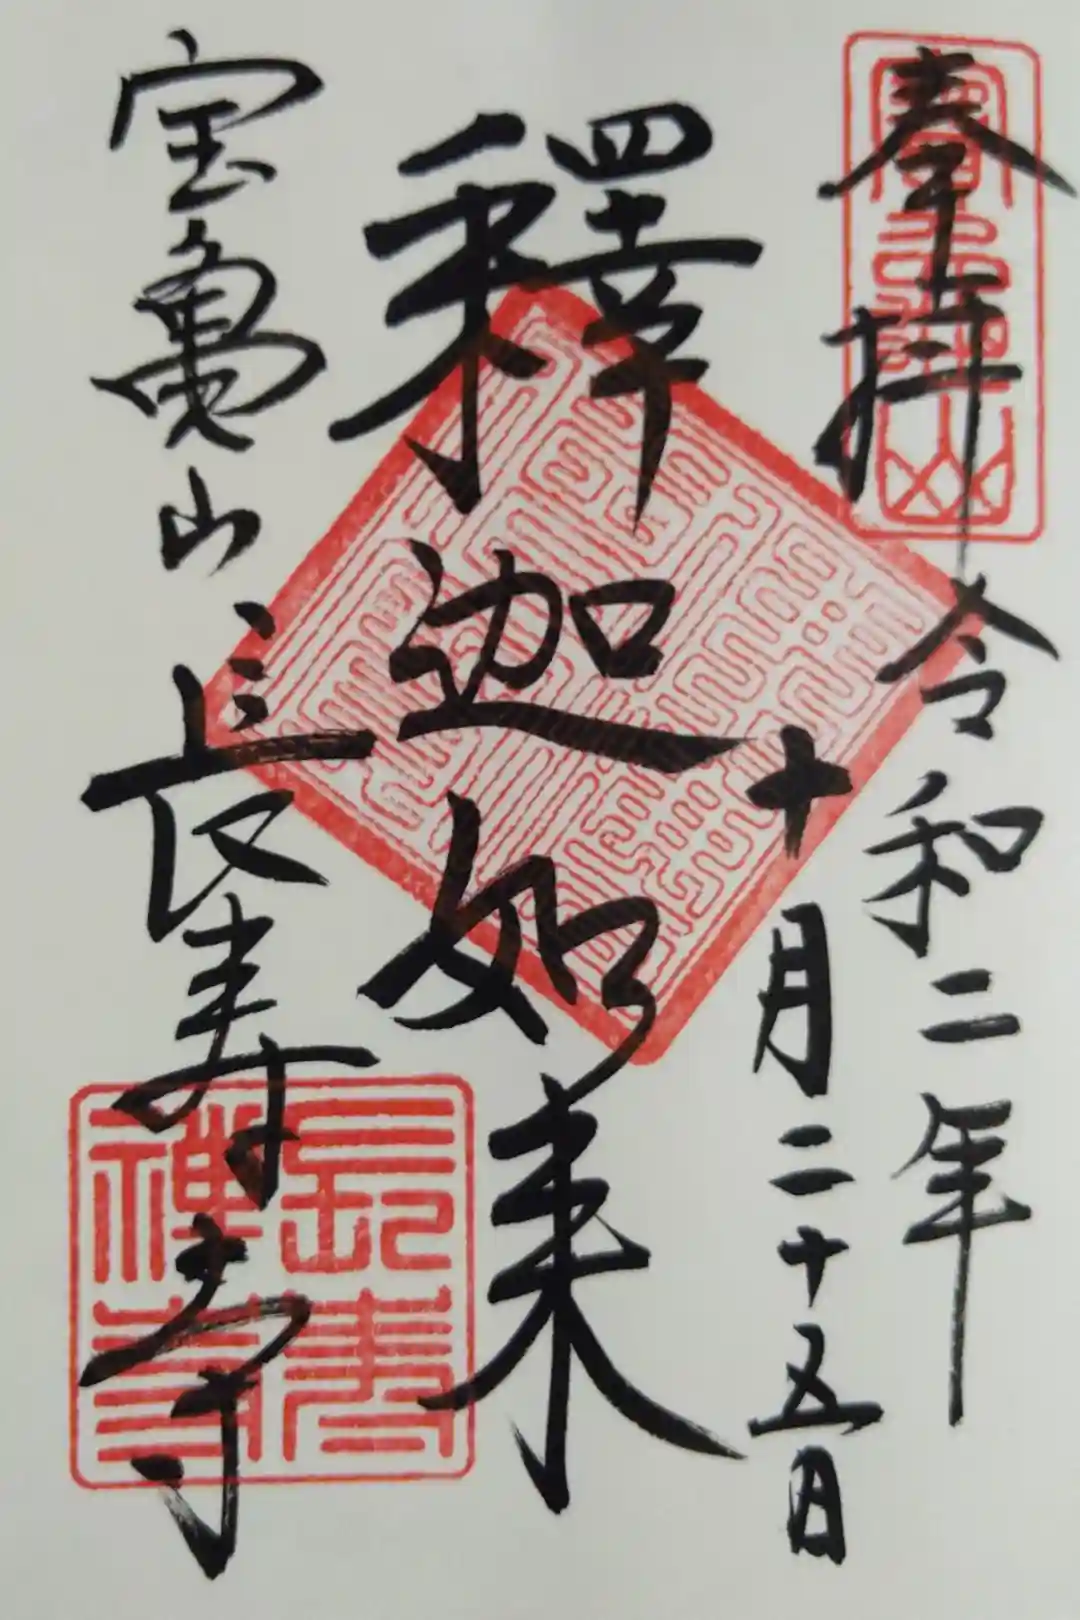 奉拝
令和二年
十月二十五日
釋迦如来
宝亀山
長寿寺
長寿
禅寺